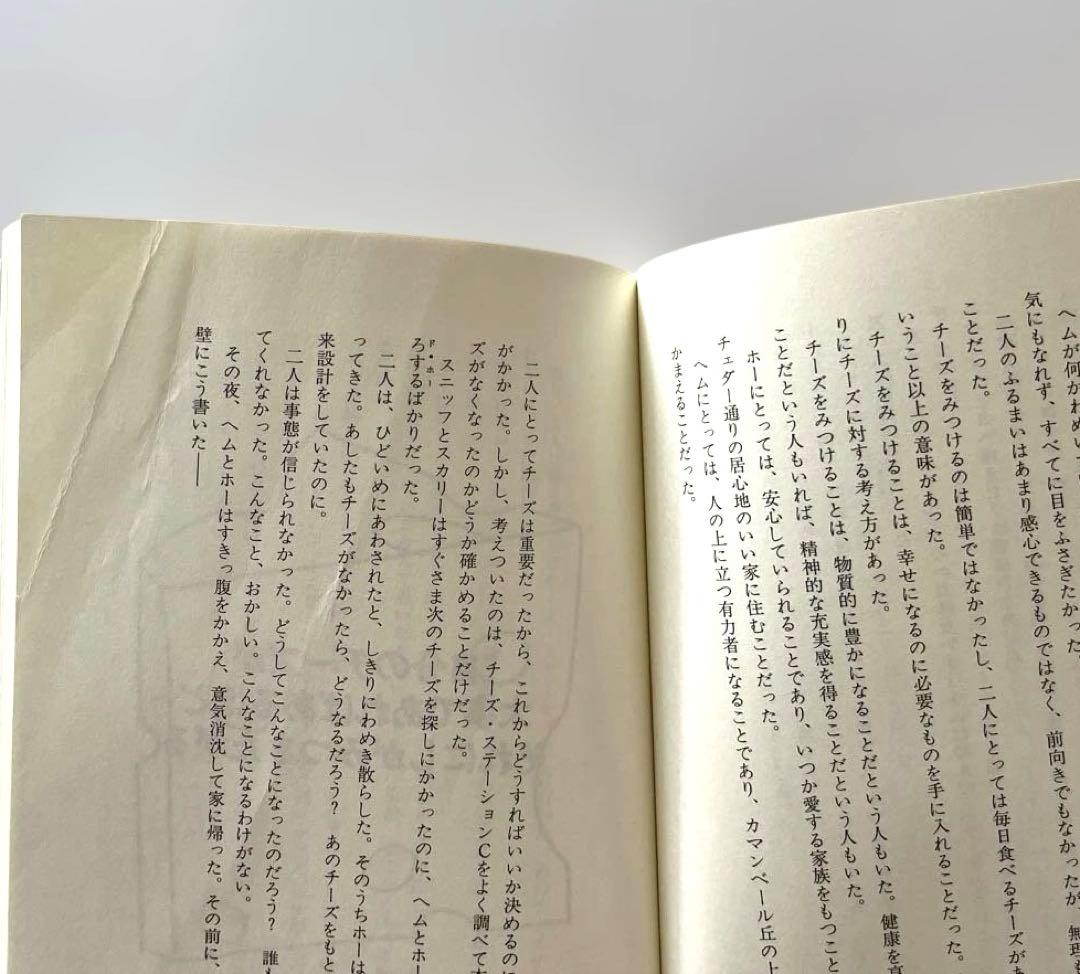 ヘムが何かわめいて
気にもなれず、すべてに目をふさぎたかった
二人のふるまいはあまり感心できるものではなく、前向きでもなかったが、無理も
ことだった。
チーズをみつけるのは簡単ではなかったし、二人にとっては毎日食べるチーズがあ
いうこと以上の意味があった。
チーズをみつけることは、幸せになるのに必要なものを手に入れることだった。
りにチーズに対する考え方があった。
チーズをみつけることは、物質的に豊かになることだという人もいた。健康を
ことだという人もいれば、精神的な充実感を得ることだという人もいた。
ホーにとっては、安心していられることであり、いつか愛する家族をもつこと
チェダー通りの居心地のいい家に住むことだった。
ヘムにとっては、人の上に立つ有力者になることであり、カマンベール丘の上
かまえることだった。
二人にとってチーズは重要だったから、これからどうすればいいか決めるのに
がかかった。しかし、考えついたのは、チーズ・ステーションCをよく調べて本
ズがなくなったのかどうか確かめることだけだった。
スニッフとスカリーはすぐさま次のチーズを探しにかかったのに、ヘムとホー
ド・ホー
ろするばかりだった。
二人は、ひどいめにあわされたと、しきりにわめき散らした。そのうちホーは
ってきた。あしたもチーズがなかったら、どうなるだろう? あのチーズをもと
来設計をしていたのに。
二人は事態が信じられなかった。どうしてこんなことになったのだろう? 誰も
てくれなかった。こんなこと、おかしい。こんなことになるわけがない。
その夜、ヘムとホーはすきっ腹をかかえ、意気消沈して家に帰った。その前に、
壁にこう書いた――